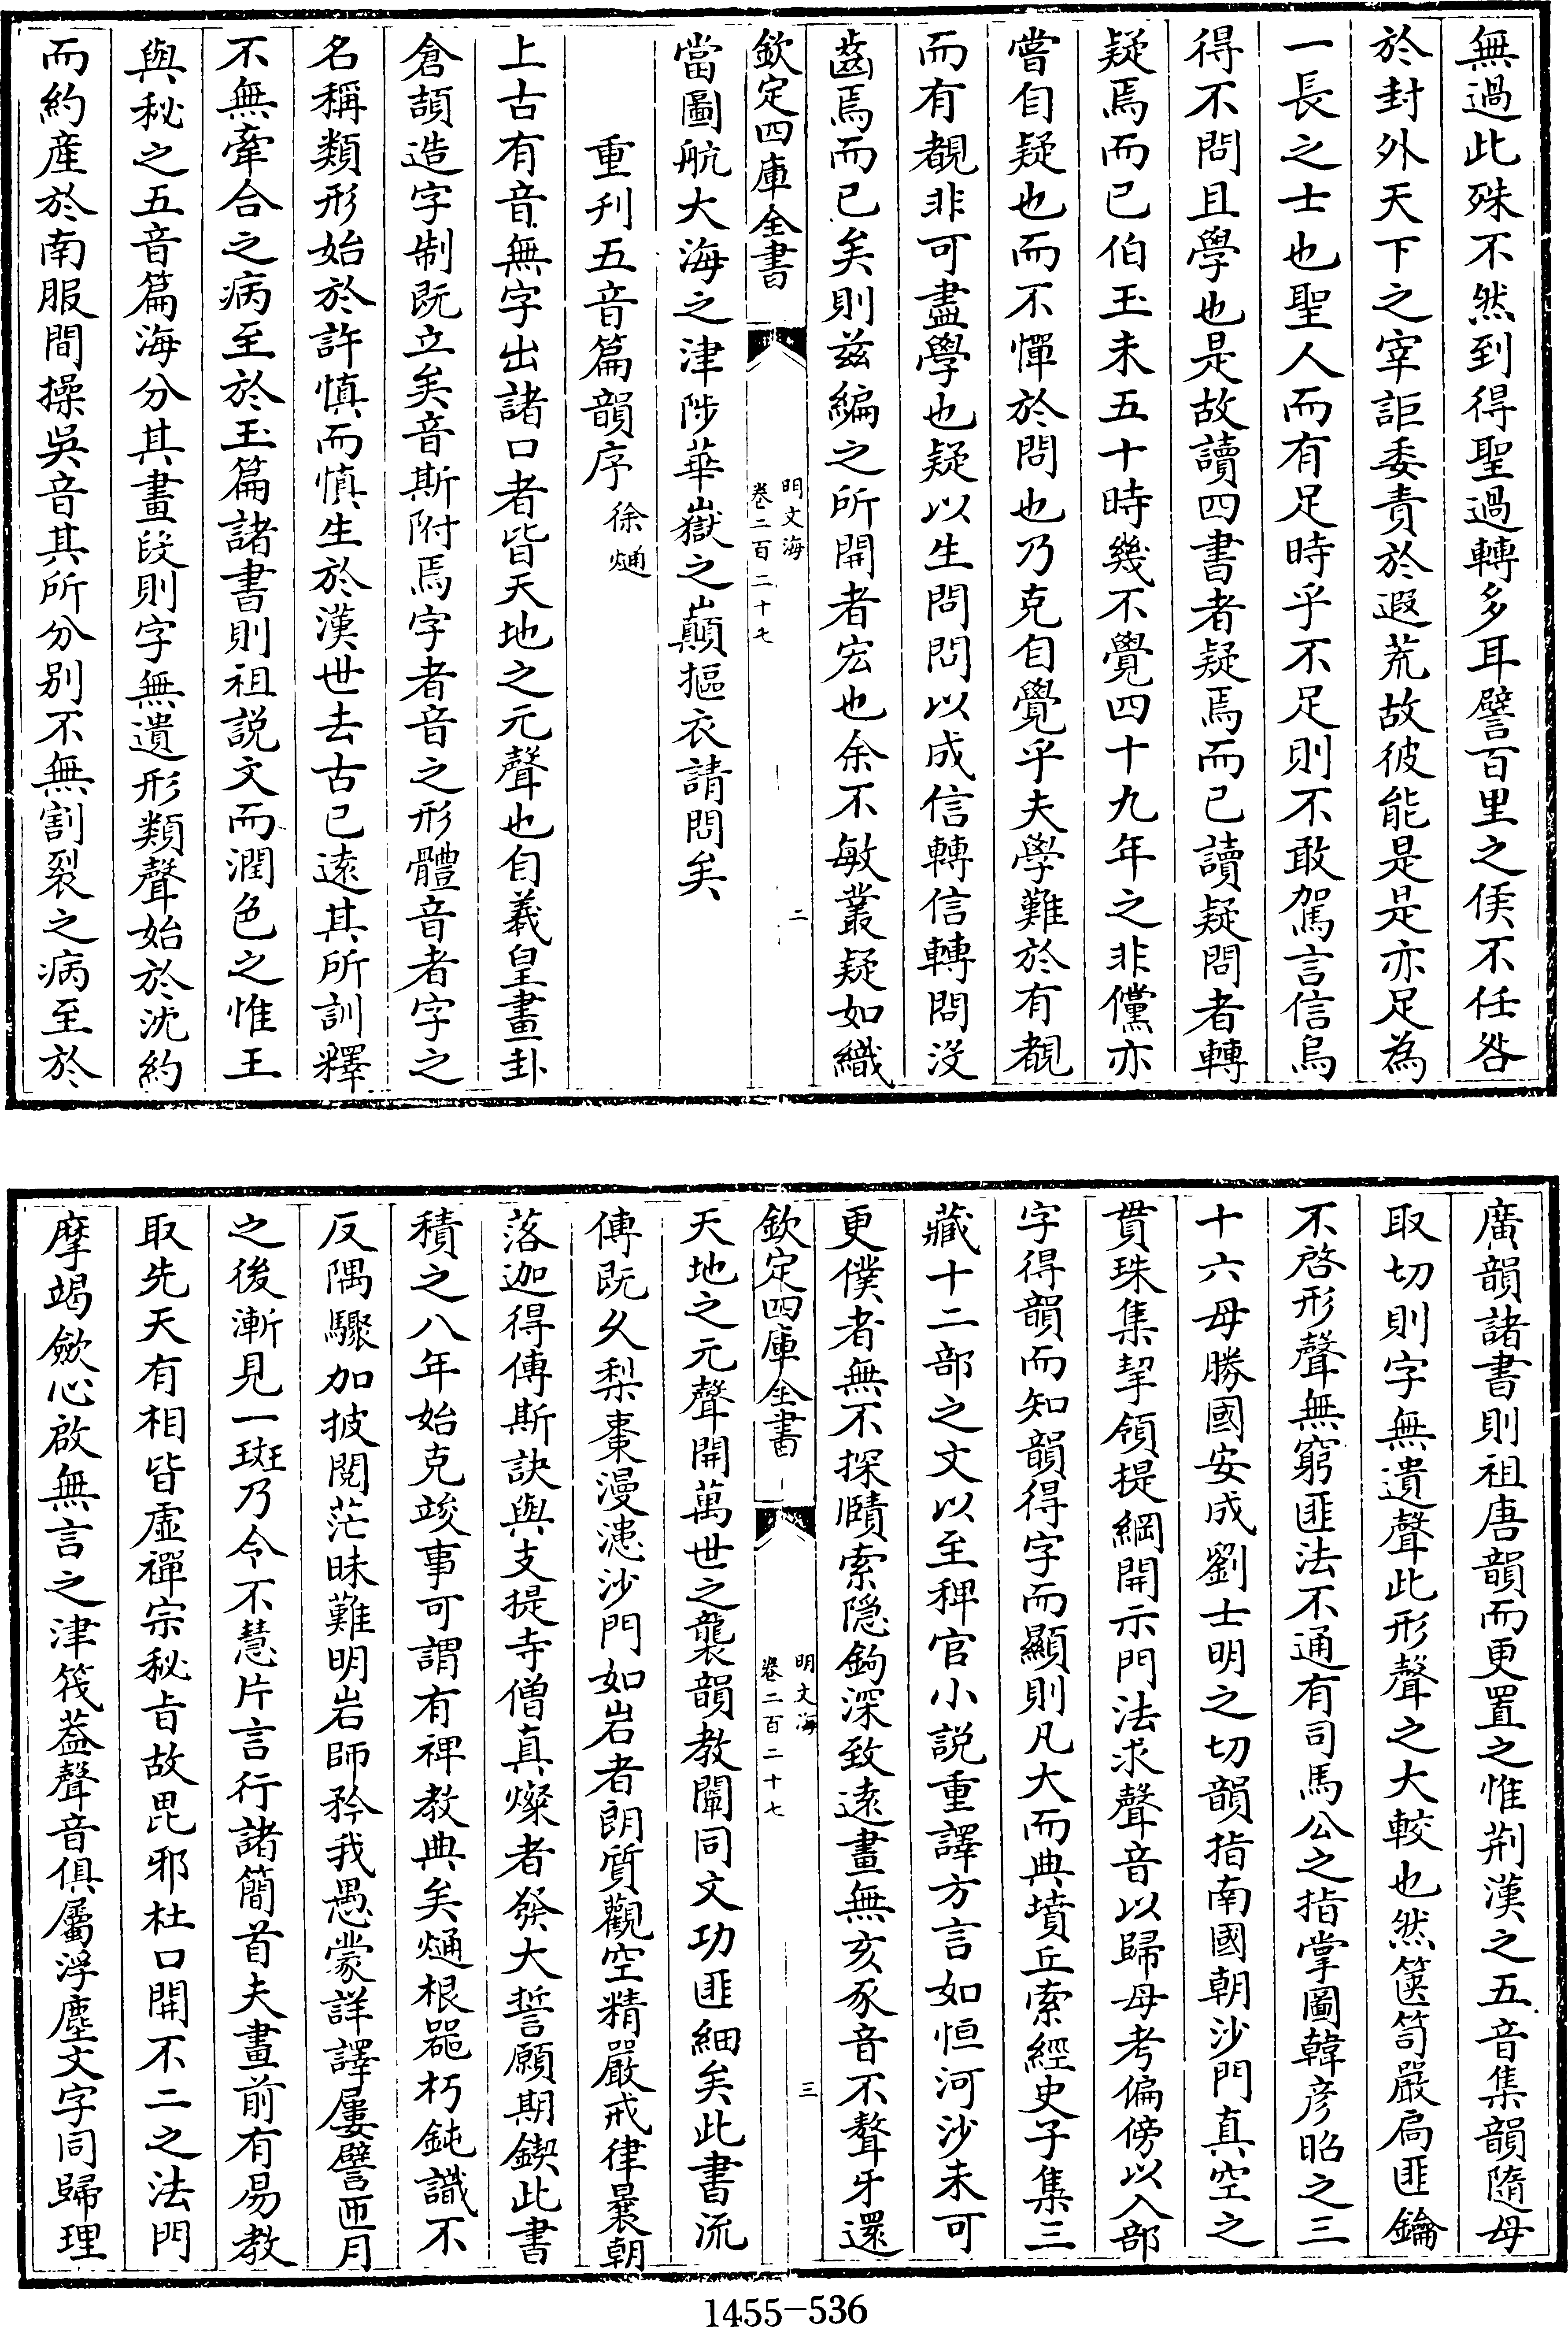 無過此殊不然到得聖過轉多耳譬百里之侯不任咎
於封外天下之宰詎委責於遐荒故彼能是是亦足為
一長之士也聖人而有足時乎不足則不敢駕言信烏
得不問且學也是故讀四書者疑焉而已讀疑問者轉
疑焉而已伯玉未五十時幾不覺四十九年之非儻亦
嘗自疑也而不憚於問也乃克自覺乎夫學難於有覩
而有覩非可盡學也疑以生問問以成信轉信轉問沒
齒焉而已矣則兹編之所開者宏也余不敏叢疑如織
欽定四庫全書
明文海
卷二百二十七
二
當圖航大海之津陟華嶽之巔摳衣請問矣
重刋五音篇韻序
徐𤊹
上古有音無字出諸口者皆天地之元聲也自羲皇畫卦
倉頡造字制既立矣音斯附焉字者音之形體音者字之
名稱類形始於許慎而慎生於漢世去古已逺其所訓釋
不無牽合之病至於玉篇諸書則祖說文而潤色之惟王
與秘之五音篇海分其畫段則字無遺形類聲始於沈約
而約産於南服間操吳音其所分别不無割裂之病至於
廣韻諸書則祖唐韻而更置之惟荆漢之五音集韻隨母
取切則字無遺聲此形聲之大較也然篋笥嚴扃匪鑰
不啓形聲無窮匪法不通有司馬公之指掌圖韓彦昭之三
十六母勝國安成劉士明之切韻指南國朝沙門真空之
貫珠集挈領提綱開示門法求聲音以歸母考偏傍以入部
字得韻而知韻得字而顯則凡大而典墳丘索經史子集三
藏十二部之文以至稗官小說重譯方言如恒河沙未可
更僕者無不探賾索隐鉤深致逺畫無亥豕音不聱牙還
欽定四庫全書
明文海
卷二百二十七
三
天地之元聲開萬世之襲韻教闡同文功匪細矣此書流
傳既乆梨棗漫漶沙門如岩者朗質觀空精嚴戒律曩朝
落迦得傳斯訣與支提寺僧真燦者發大誓願期鍥此書
積之八年始克竣事可謂有裨教典矣𤊹根噐朽鈍識不
反隅驟加披閱茫昧難明岩師矜我愚蒙詳譯屢譬匝月
之後漸見一斑乃令不慧片言行諸簡首夫畫前有易教
取先天有相皆虚禪宗秘旨故毘邪杜口開不二之法門
摩竭斂心啟無言之津筏葢聲音俱屬浮塵文字同歸理
1455-536